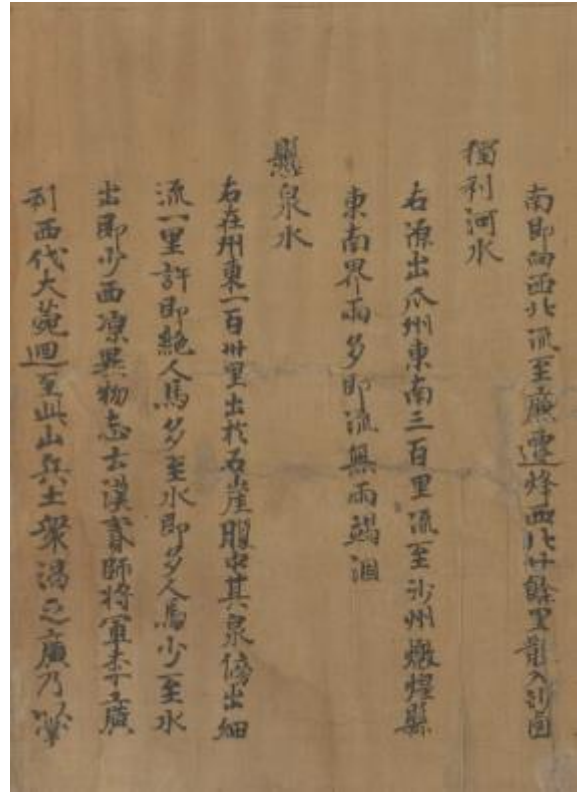 南即向西北流至廉遷烽西北廿餘里散入沙鹵
獨利河水
右源出瓜州東南三百里流至沙州燉煌縣
東南界雨多即流無雨竭涸
懸泉水
右在州東一百卅里出於石崖腹中其泉傍出細
流一里許即絕人馬多至水即多人馬少至水
出即少西凉異物志云漢貳師將軍李廣
利西伐大菀迴至此山兵士衆渴乏廣乃以掌